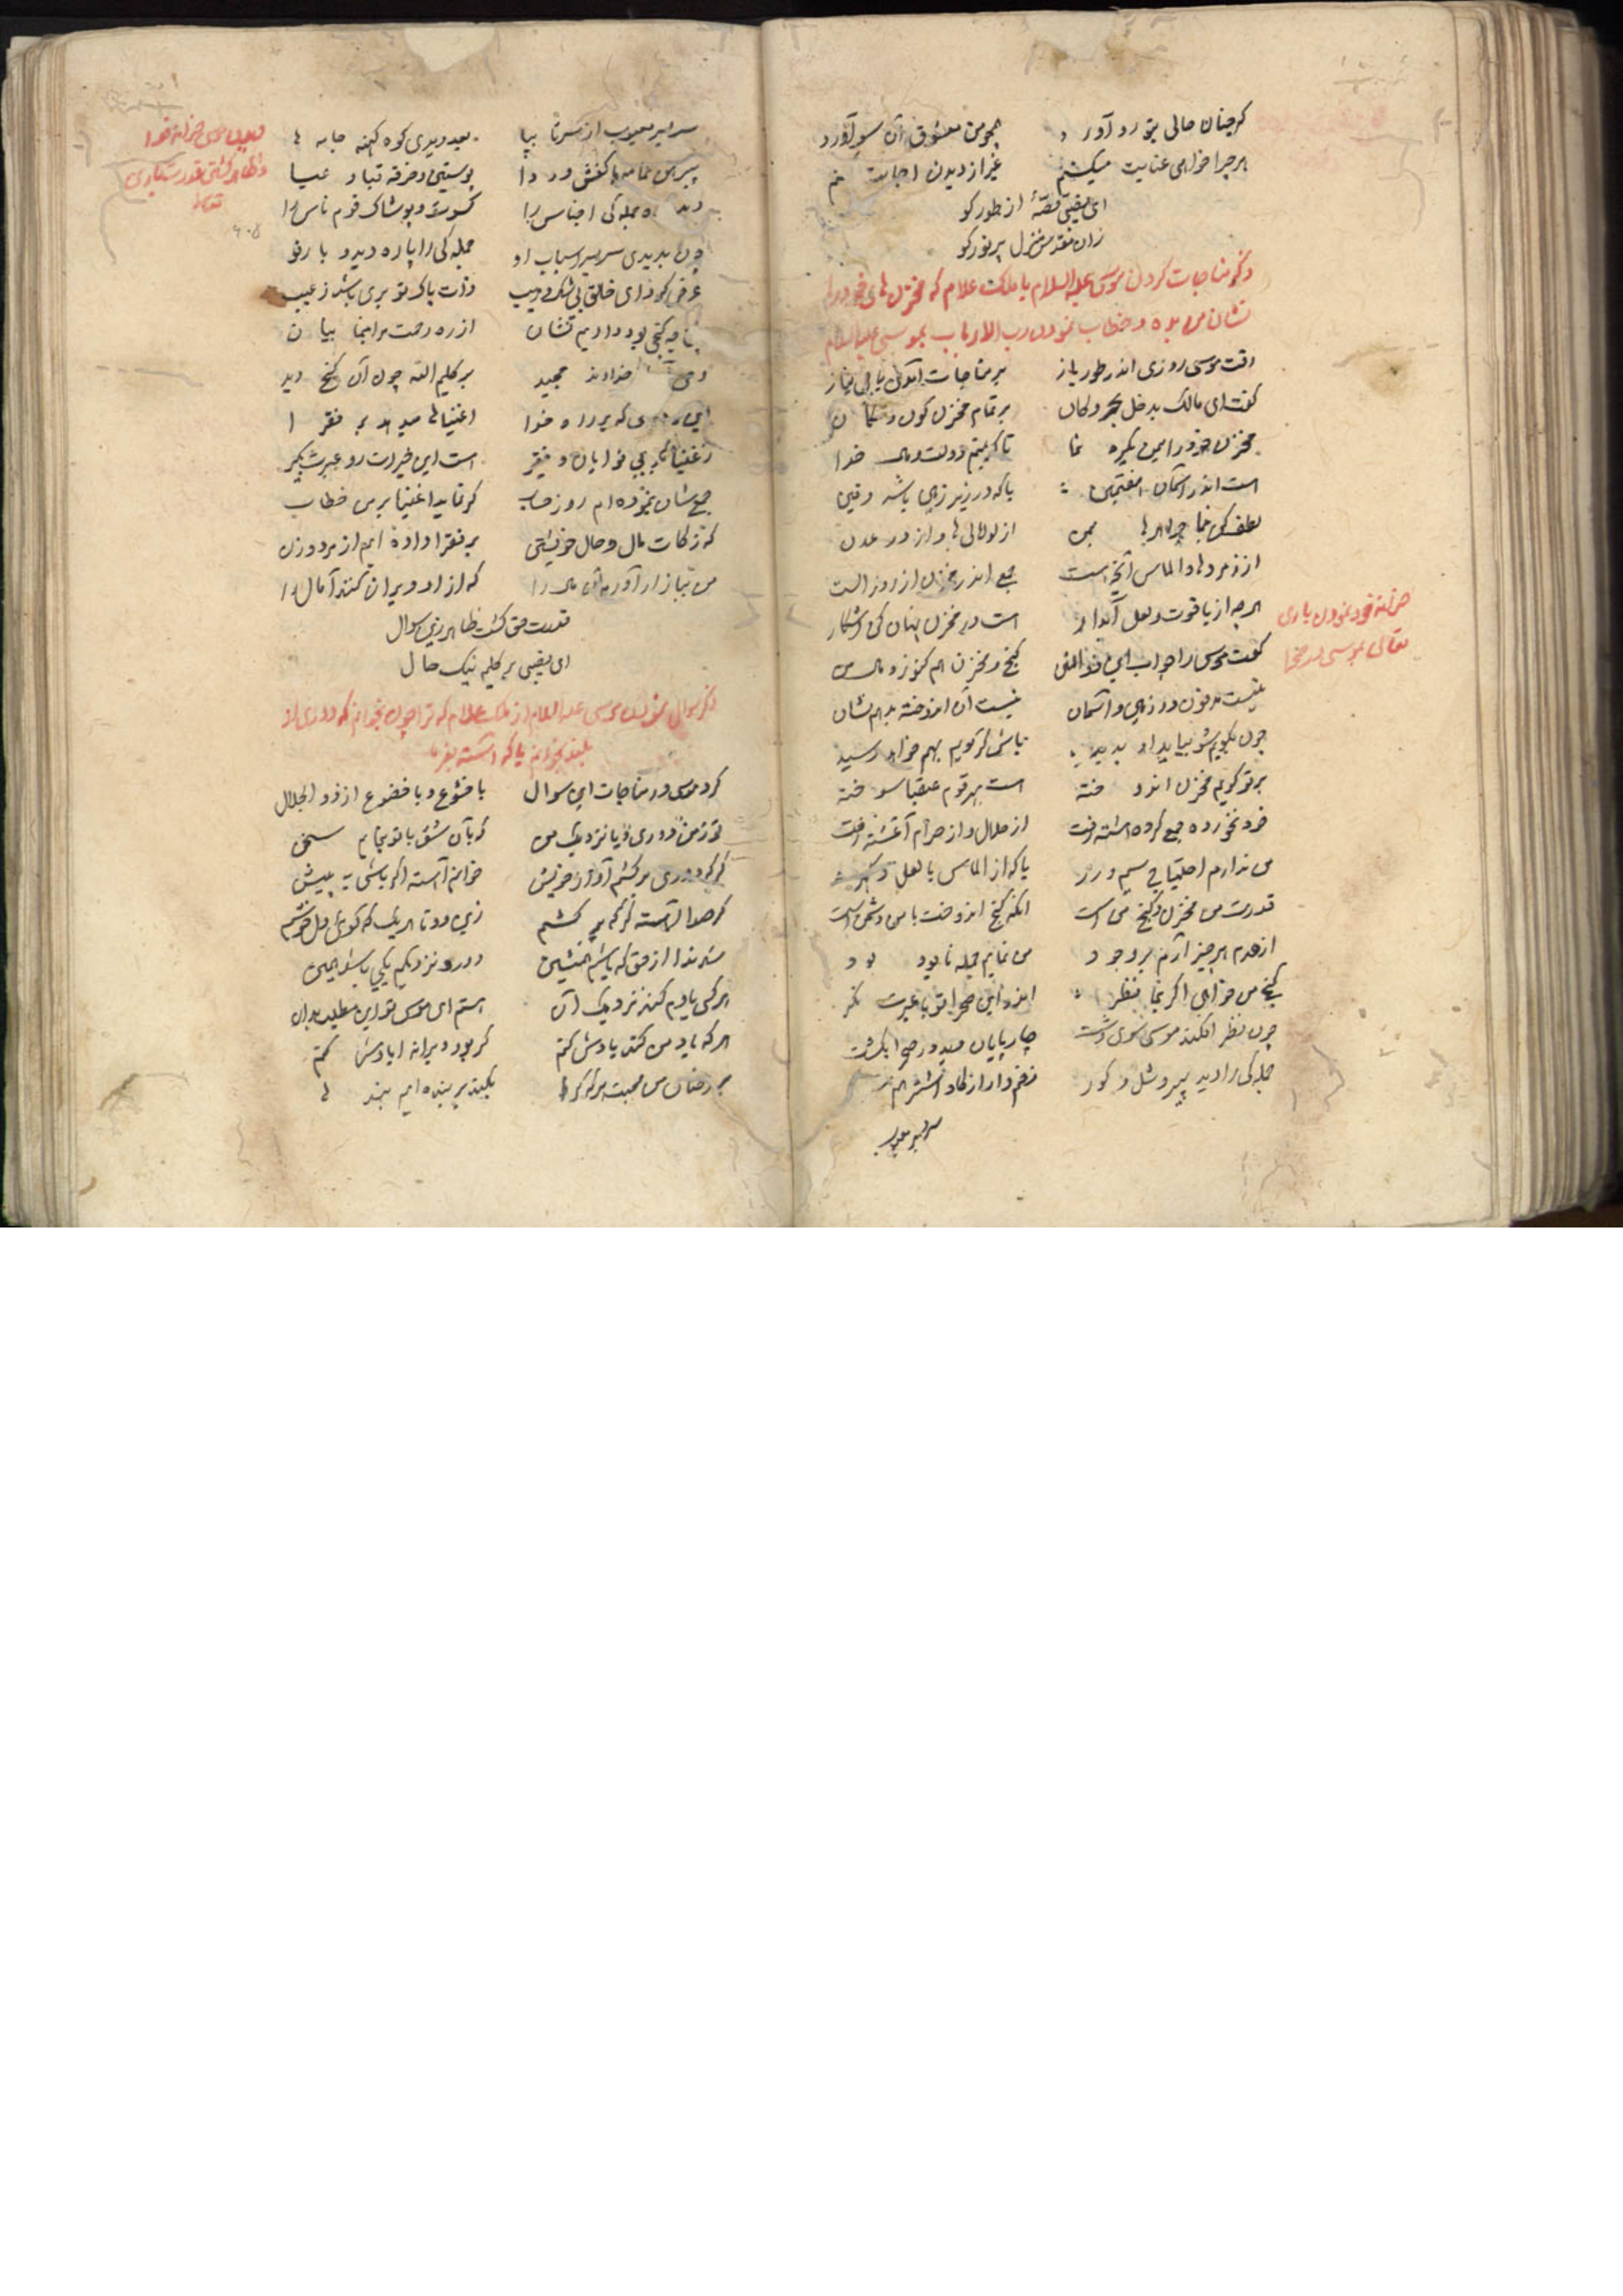 گر چنان حالی بتو رو آورد همچو من معشوق آن سو آورد
هر چرا خواهی عنایت میکنم غیر از دیدن اجابت
ای یقینی قصهٔ از طور گو
زان مقدس منزل پر نور گو
ذکر مناجات کردن موسی علیه السلام با ملک علام که مخزن های خود را
نشان من بده و خطاب نمودن رب الارباب بموسی علیه السلام
رفت موسی روزی اندر طور باز بر مناجات آن بی نیاز
گفت ای مالک بدخل بحر و کان بر تمام مخزن کون و مکان
مخزن خود را بمن یکره نما تا که بینم دولت و مال خدا
است اندر آسمان هفتمین یا که در زیر زمین باشد دفین
لطف کن بنما جواهرها بمن از لولالی ها و از در عدن
از زمرد ها و الماس آنچه است جمع اندر مخزن از روز الست
هر چه از یاقوت و لعل آبدار است در مخزن پنهان کن آشکار
گفت موسی را جواب این ذو المنن گنج و مخزن هم کنوز و مال من
نیست مدفون در زمین و آسمان نیست آن اندوخته بدهم نشان
چون بگویم شو بیاید بدید باش گر گویم بهم خواهد رسید
بر تو گویم مخزن اندوخته است بهر قوم عقبا سوخته
خود نخورده جمع کرده داشته رفت از حلال و از حرام آغشته رفت
من ندارم احتیاج سیم و زر یا که از الماس یا لعل و گهر
قدرت من مخزن و گنج من است آنکه گنج اندوخت با من دشمن است
از عدم هر چیز آرم بر وجود من نمایم جمله نابود بود
گنج من خواهی اگر بنما نظر اندر این صحرا تو با عبرت نگر
چون نظر افکند موسی سوی دشت چارپایان دید در صحرا بگشت
جمله گی را دید پیر و شل و کور زخم دار از گاو و اشتر هم
سر بسر معیوب
خزانهٔ خود نمودن باری
تعالی بموسی در صحرا
سر بسر معیوب از سر تا بپا بعد دیدی کوه کهنه جامه ها
پیرهن عمامه ها کفش و ردا پوستین و خرقه قبا و عبا
دید جمله گی اجناس را کسوت و پوشاک قوم ناس را
چون بدیدی سر بسر اسباب او جمله گی را پاره دید و با رفو
عرض کرد ای خالق بی شک و ریب ذات پاک تو بری باشد ز عیب
چه گنجی بود دادیم نشان از ره رحمت مرا بنما بیان
خداوند مجید بر کلیم الله چون آن گنج دید
این که بر راه خدا اغنیا ها میدهد بر فقرا
ز اغنیا بی نوایان و فقیر است این خیرات رو عبرت بگیر
جمع شان بنموده ام روز حساب گر نماید اغنیا بر من خطاب
که زکات مال و حال خویشتن بر فقرا داده ایم از مرد و زن
من نیاز ار آورم آن مال را که از او ویران کنند آمال را
قدرت حق گشت ظاهر زین سوال
ای یقینی بر کلیم نیک حال
ذکر سوال نمودن موسی علیه السلام از ملک علام که ترا چون بخوانم که دوری از
بلند بخوانم یا که آهسته بفرما
کرد موسی در مناجات این سوال با خشوع و با خضوع از ذو الجلال
تو ز من دوری و یا نزدیک من که بآن شق با تو بنمایم سخن
گر که دوری بر کشم آواز خویش خوانم آهسته اگر باشی به پیش
گر صدا آهسته گر که بر کشم زین دو تا هر یک که گوئی دل خوشم
شد ندا از حق که باشم همنشین دور و نزدیکم یکی باشد همین
هر کس یادم کند نزدیک آن هستم ای موسی تو این مطلب بدان
هر که یاد من کند یادش کنم گر بود ویرانه آبادش کنم
دیدن موسی خزانهٔ خدا
و ظاهر گشتن قدرت باری
تعالی